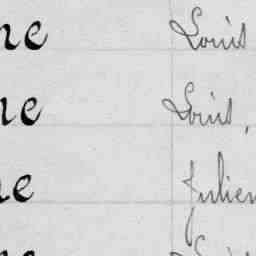 ne Louis
ne Louis,
ne Julien